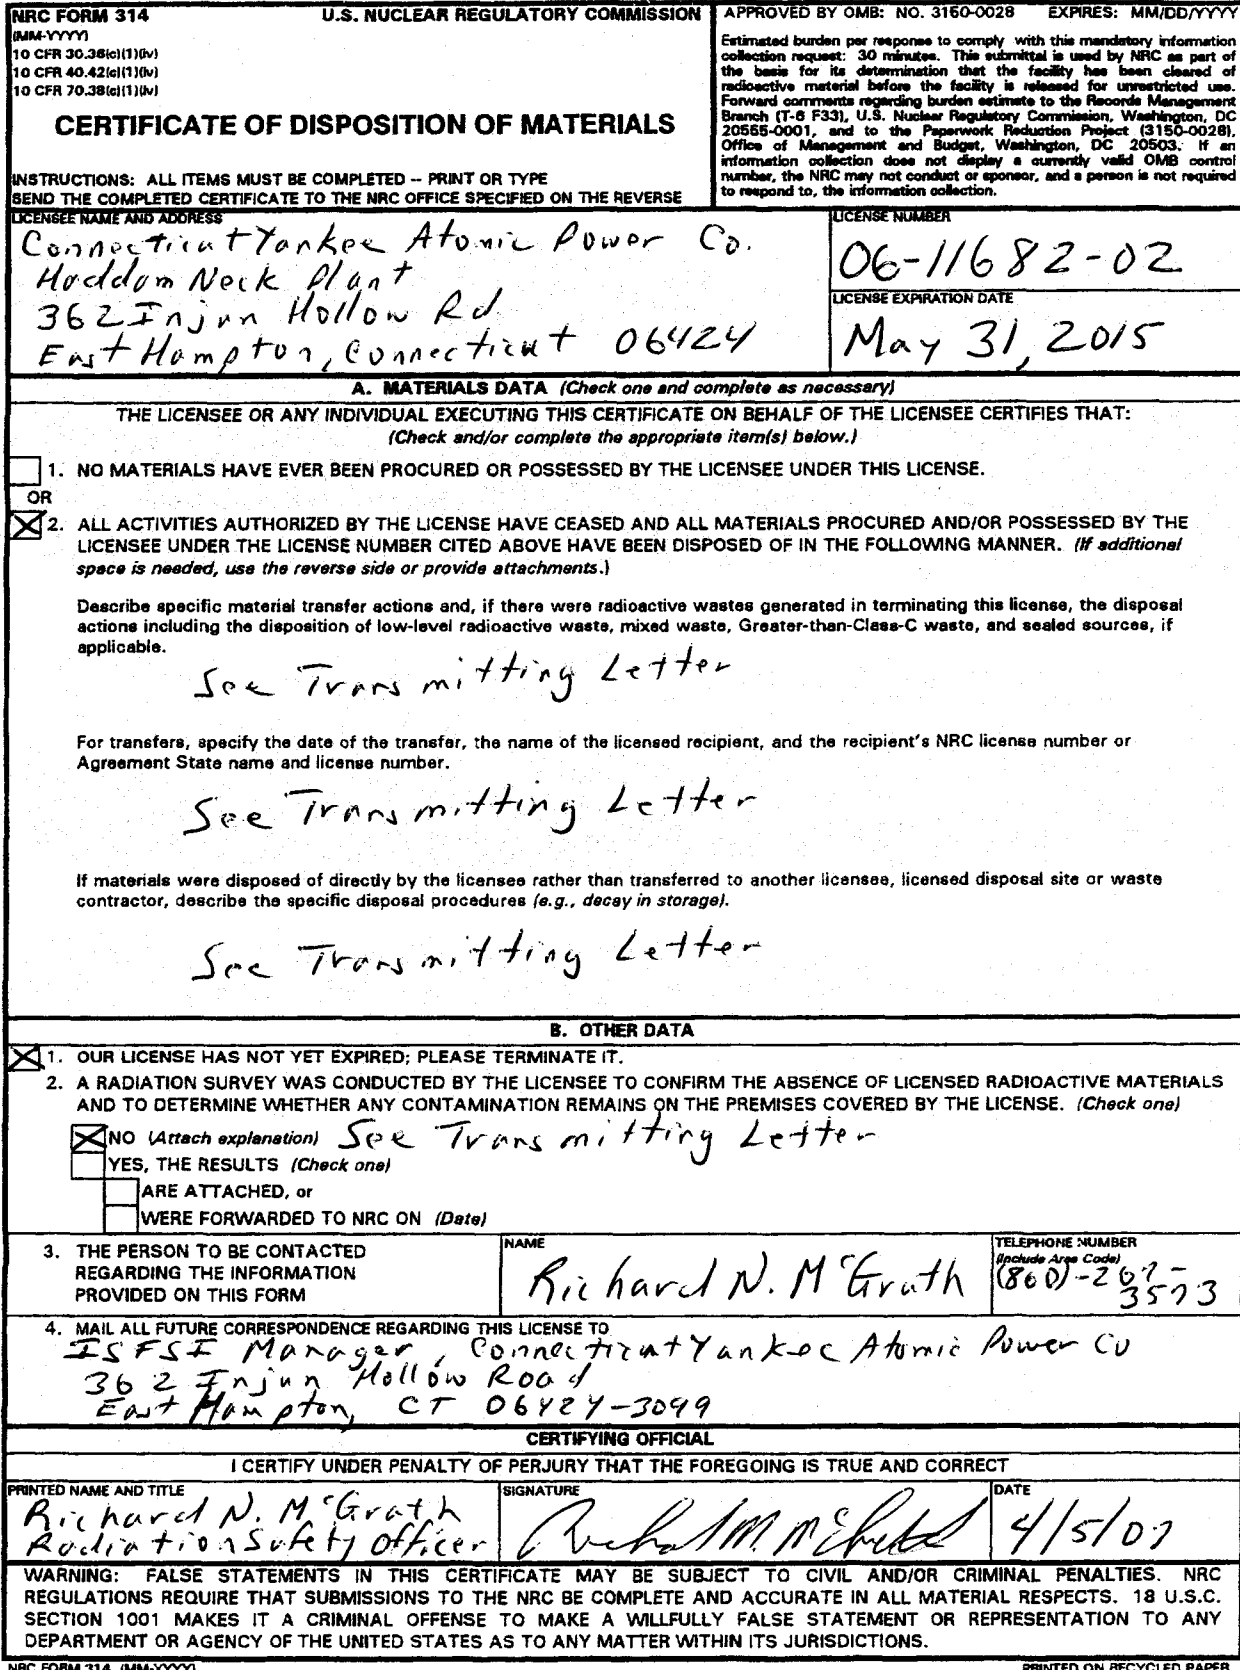 NRC FORM 314
U.S. NUCLEAR REGULATORY COMMISSION
(MM-YYYY)
10 CFR 30.36(c)(1)(iv)
10 CFR 40.42(c)(1)(iv)
10 CFR 70.38(c)(1)(iv)
CERTIFICATE OF DISPOSITION OF MATERIALS
INSTRUCTIONS: ALL ITEMS MUST BE COMPLETED -- PRINT OR TYPE
SEND THE COMPLETED CERTIFICATE TO THE NRC OFFICE SPECIFIED ON THE REVERSE
APPROVED BY OMB: NO. 3150-0028 EXPIRES: MM/DD/YYYY
Estimated burden per response to comply with this mandatory information
collection request: 30 minutes. This submittal is used by NRC as part of
the basis for its determination that the facility has been cleared of
radioactive material before the facility is released for unrestricted use.
Forward comments regarding burden estimate to the Records Management
Branch (T-6 F33), U.S. Nuclear Regulatory Commission, Washington, DC
20555-0001, and to the Paperwork Reduction Project (3150-0028),
Office of Management and Budget, Washington, DC 20503. If an
information collection does not display a currently valid OMB control
number, the NRC may not conduct or sponsor, and a person is not required
to respond to, the information collection.
LICENSEE NAME AND ADDRESS
Connecticut Yankee Atomic Power Co.
Haddam Neck Plant
362 Injun Hollow Rd
East Hampton, Connecticut 06424
LICENSE NUMBER
06-11682-02
LICENSE EXPIRATION DATE
May 31, 2015
A. MATERIALS DATA (Check one and complete as necessary)
THE LICENSEE OR ANY INDIVIDUAL EXECUTING THIS CERTIFICATE ON BEHALF OF THE LICENSEE CERTIFIES THAT:
(Check and/or complete the appropriate item(s) below.)
1. NO MATERIALS HAVE EVER BEEN PROCURED OR POSSESSED BY THE LICENSEE UNDER THIS LICENSE.
OR
2. ALL ACTIVITIES AUTHORIZED BY THE LICENSE HAVE CEASED AND ALL MATERIALS PROCURED AND/OR POSSESSED BY THE
LICENSEE UNDER THE LICENSE NUMBER CITED ABOVE HAVE BEEN DISPOSED OF IN THE FOLLOWING MANNER. (If additional
space is needed, use the reverse side or provide attachments.)
Describe specific material transfer actions and, if there were radioactive wastes generated in terminating this license, the disposal
actions including the disposition of low-level radioactive waste, mixed waste, Greater-than-Class-C waste, and sealed sources, if
applicable.
See Transmitting Letter
For transfers, specify the date of the transfer, the name of the licensed recipient, and the recipient's NRC license number or
Agreement State name and license number.
See Transmitting Letter
If materials were disposed of directly by the licensee rather than transferred to another licensee, licensed disposal site or waste
contractor, describe the specific disposal procedures (e.g., decay in storage).
See Transmitting Letter
B. OTHER DATA
1. OUR LICENSE HAS NOT YET EXPIRED; PLEASE TERMINATE IT.
2. A RADIATION SURVEY WAS CONDUCTED BY THE LICENSEE TO CONFIRM THE ABSENCE OF LICENSED RADIOACTIVE MATERIALS
AND TO DETERMINE WHETHER ANY CONTAMINATION REMAINS ON THE PREMISES COVERED BY THE LICENSE. (Check one)
NO (Attach explanation) See Transmitting Letter
YES, THE RESULTS (Check one)
ARE ATTACHED, or
WERE FORWARDED TO NRC ON (Date)
3. THE PERSON TO BE CONTACTED
REGARDING THE INFORMATION
PROVIDED ON THIS FORM
NAME
Richard N. McGrath
TELEPHONE NUMBER
(Include Area Code)
(860)-267-
3573
4. MAIL ALL FUTURE CORRESPONDENCE REGARDING THIS LICENSE TO
ISFSI Manager, Connecticut Yankee Atomic Power Co
362 Injun Hollow Road
East Hampton, CT 06424-3099
CERTIFYING OFFICIAL
I CERTIFY UNDER PENALTY OF PERJURY THAT THE FOREGOING IS TRUE AND CORRECT
PRINTED NAME AND TITLE
Richard N. McGrath
Radiation Safety Officer
SIGNATURE
DATE
4/5/07
WARNING: FALSE STATEMENTS IN THIS CERTIFICATE MAY BE SUBJECT TO CIVIL AND/OR CRIMINAL PENALTIES. NRC
REGULATIONS REQUIRE THAT SUBMISSIONS TO THE NRC BE COMPLETE AND ACCURATE IN ALL MATERIAL RESPECTS. 18 U.S.C.
SECTION 1001 MAKES IT A CRIMINAL OFFENSE TO MAKE A WILLFULLY FALSE STATEMENT OR REPRESENTATION TO ANY
DEPARTMENT OR AGENCY OF THE UNITED STATES AS TO ANY MATTER WITHIN ITS JURISDICTIONS.
NRC FORM 314 (MM-YYYY)
PRINTED ON RECYCLED PAPER